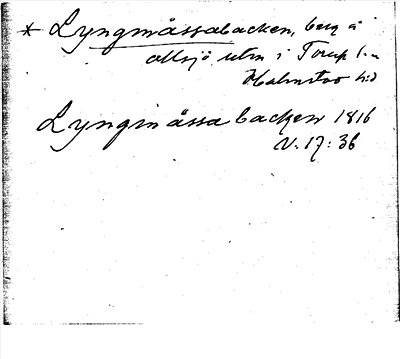 * Lyngmåssabacken, berg å
allsjö utm i Torup s:n
Halmstad h:d
Lyngmåssa backen 1816
V. 17: 36